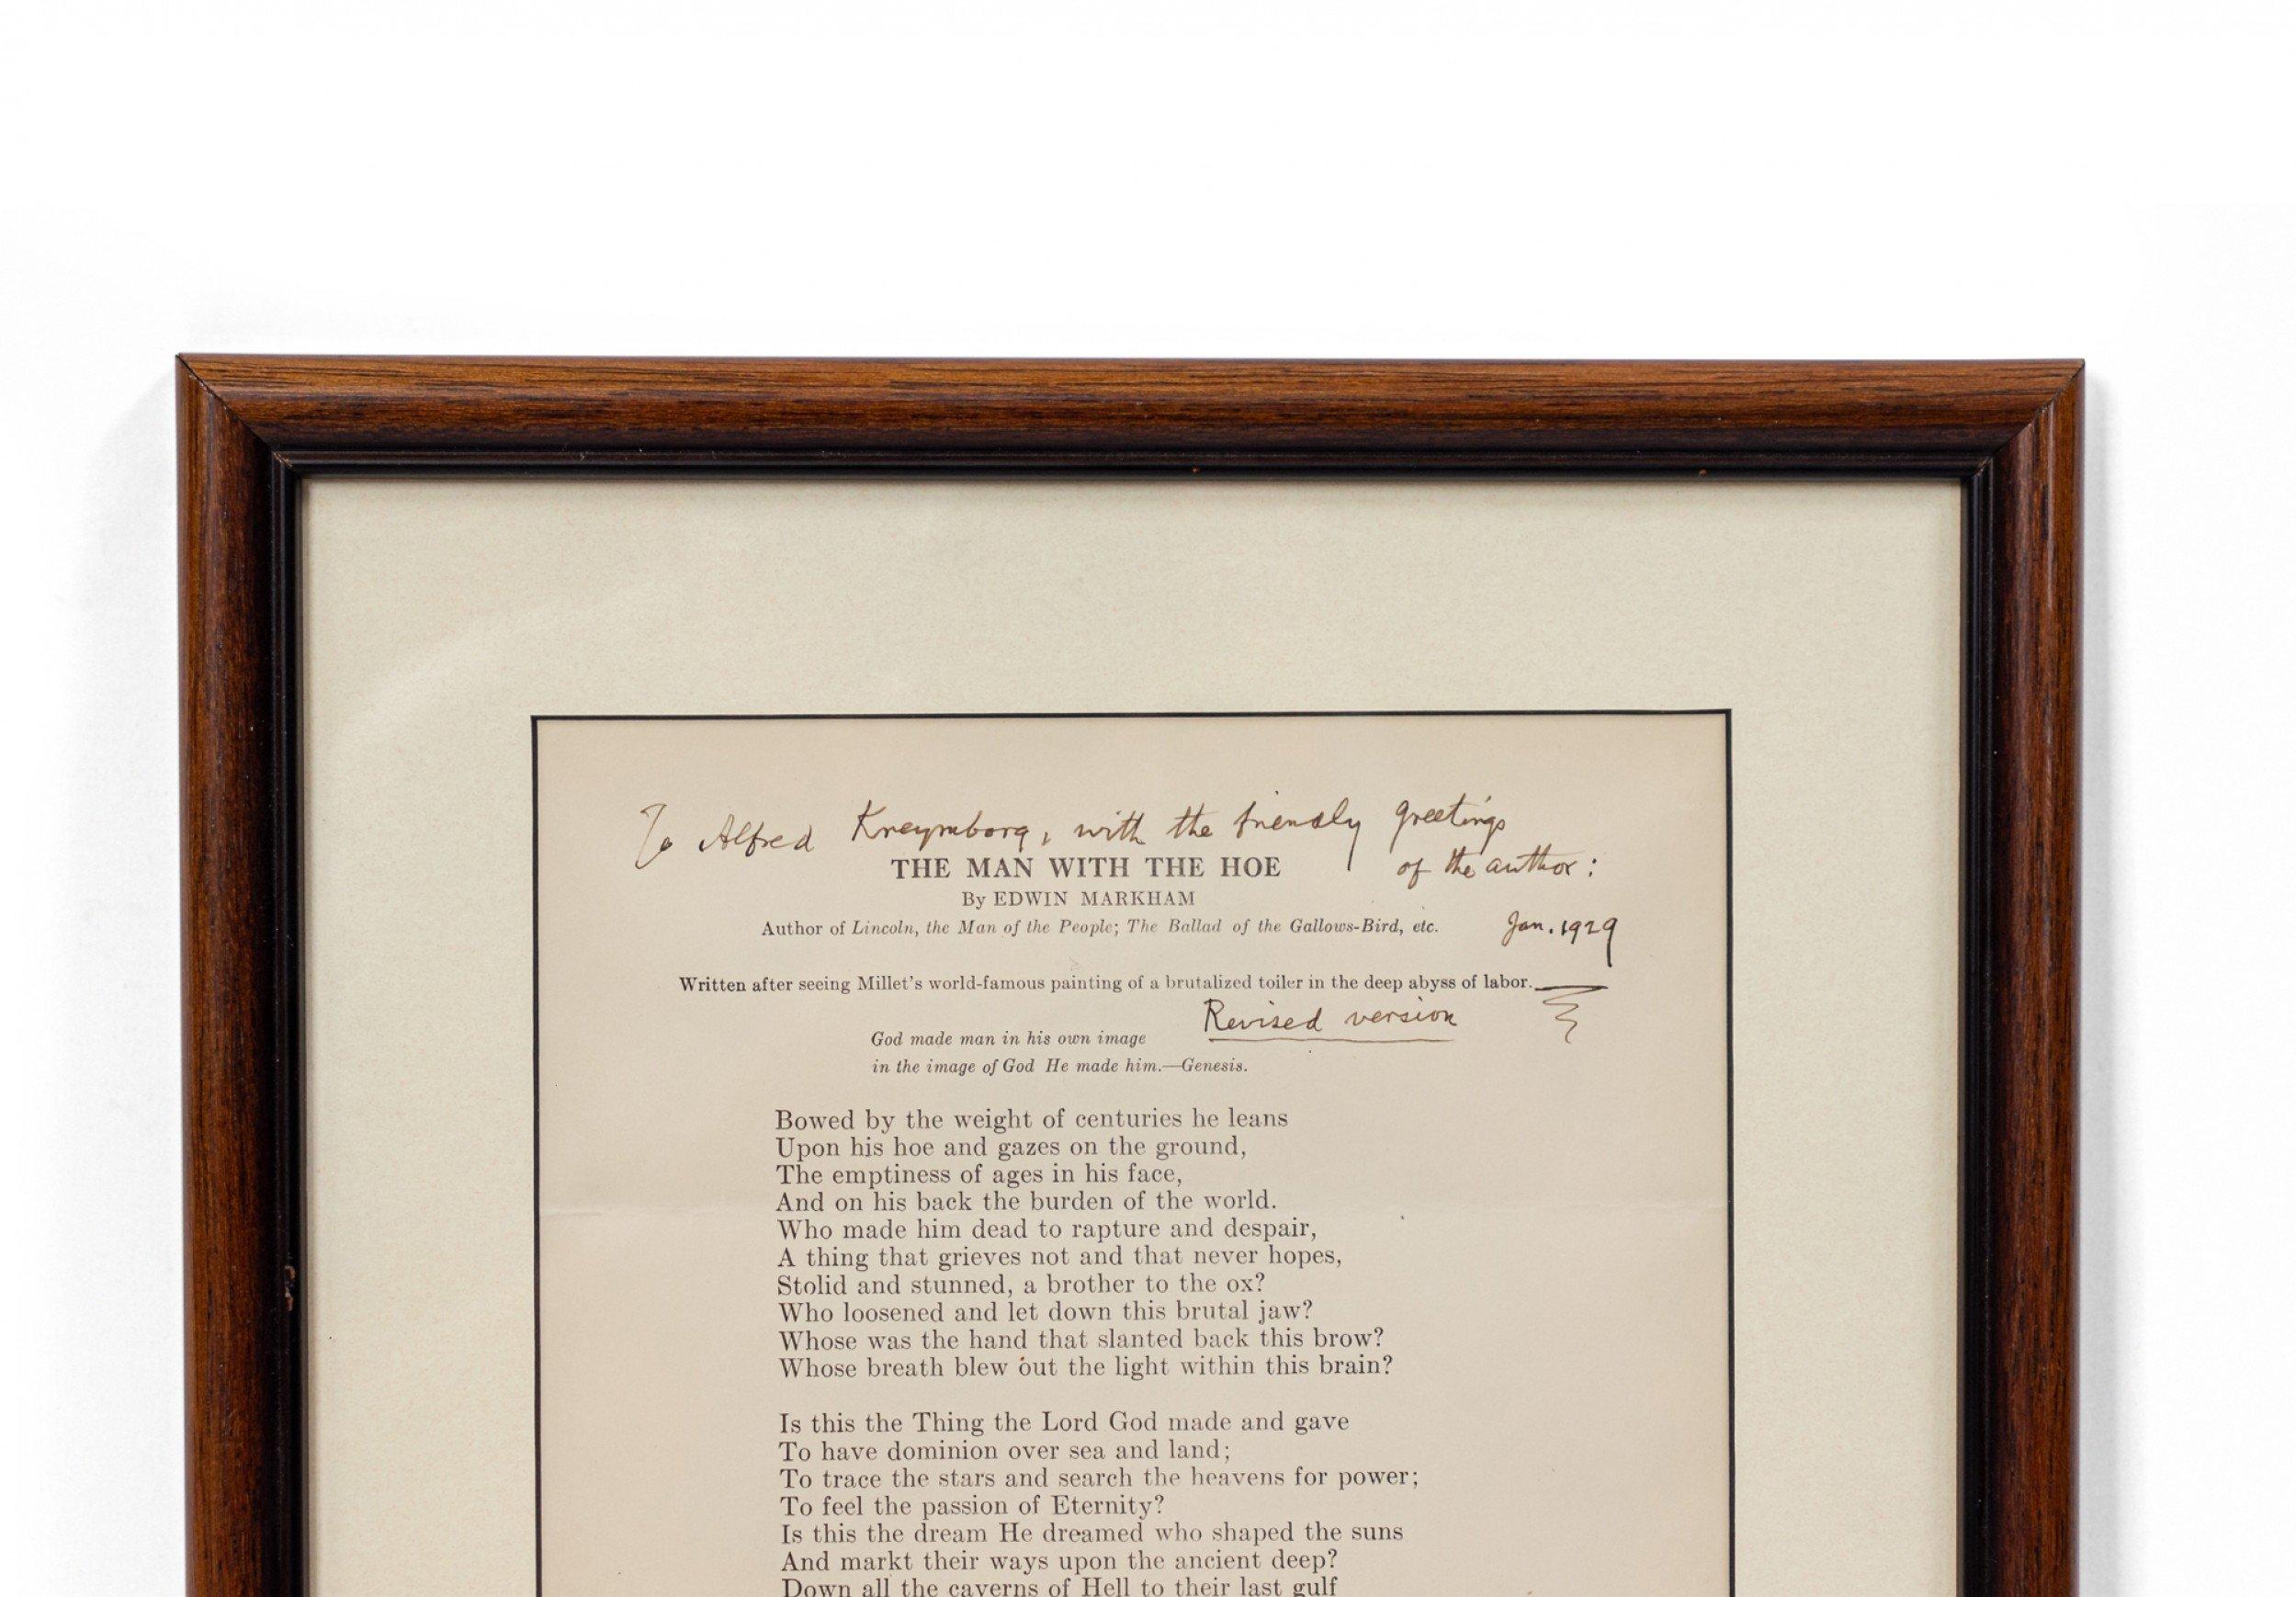 To Alfred Kreymborg, with the friendly greetings
of the author:
THE MAN WITH THE HOE
By EDWIN MARKHAM
Author of Lincoln, the Man of the People; The Ballad of the Gallows-Bird, etc.
Jan. 1929
Written after seeing Millet's world-famous painting of a brutalized toiler in the deep abyss of labor.
Revised version
God made man in his own image
in the image of God He made him.—Genesis.
Bowed by the weight of centuries he leans
Upon his hoe and gazes on the ground,
The emptiness of ages in his face,
And on his back the burden of the world.
Who made him dead to rapture and despair,
A thing that grieves not and that never hopes,
Stolid and stunned, a brother to the ox?
Who loosened and let down this brutal jaw?
Whose was the hand that slanted back this brow?
Whose breath blew out the light within this brain?
Is this the Thing the Lord God made and gave
To have dominion over sea and land;
To trace the stars and search the heavens for power;
To feel the passion of Eternity?
Is this the dream He dreamed who shaped the suns
And markt their ways upon the ancient deep?
Down all the caverns of Hell to their last gulf